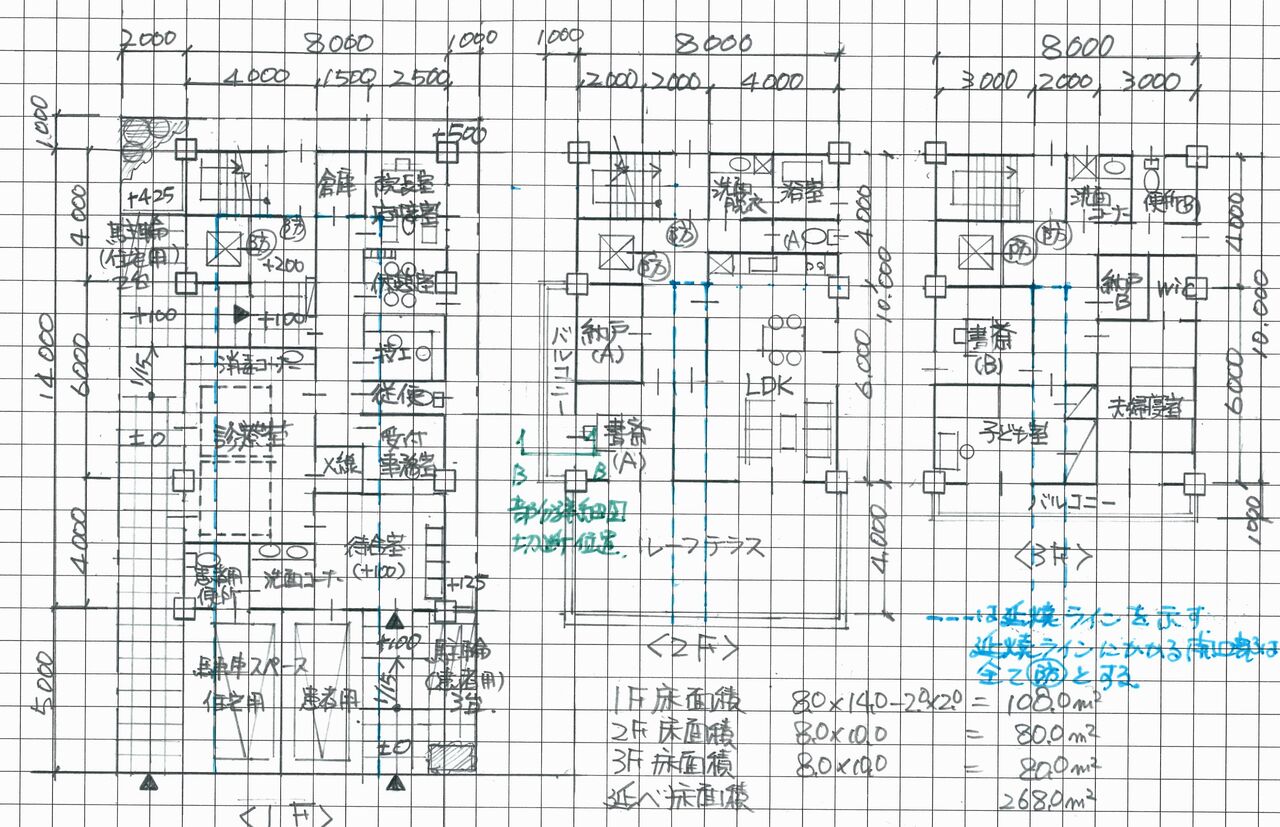 2000
8000
1000
4000
1500
2500
1000
14.000
4.000
6.000
4.000
5.000
+500
+425
倉庫
院長室
応接室
駐輪
(住宅用)
2台
防
防
+200
休憩室
+100
+100
1/15
消毒コーナー
技工
従便
±0
診療室
X線
受付
事務室
待合室
(+100)
患者用
便所
洗面コーナー
+125
+100
駐車スペース
住宅用
患者用
1/15
駐輪
(患者用)
3台
±0
<1F>
1000
8000
2000
2000
4000
洗面
脱衣
浴室
防
防
(A)
バルコニー
納戸
(A)
LDK
書斎
(A)
1
1
B
B
部分詳細図
切断位置
ルーフテラス
4.000
6.000
10.000
4.000
<2F>
8000
3000
2000
3000
洗面
コーナー
便所(B)
防
防
納戸
B
WIC
書斎
(B)
夫婦寝室
子ども室
バルコニー
4.000
6000
10.000
1000
<3F>
----は延焼ラインを示す
延焼ラインにかかる開口部は
全て防とする
1F床面積 8.0×14.0-2.0×2.0 = 108.0m²
2F床面積 8.0×10.0 = 80.0m²
3F床面積 8.0×10.0 = 80.0m²
延べ床面積 268.0m²